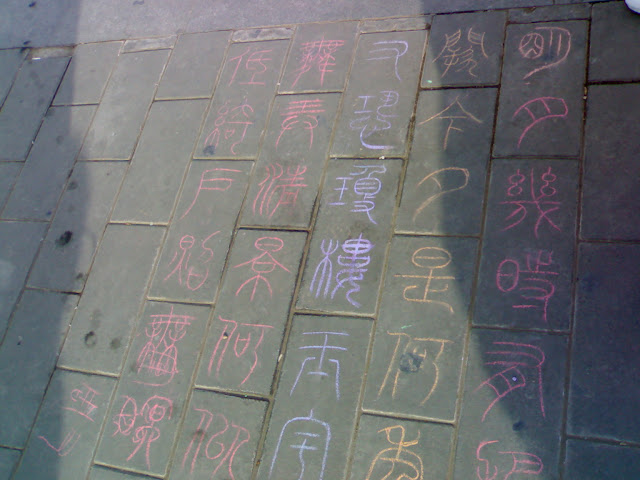 明月幾時有把
闕今夕是何年
又恐瓊樓玉宇
舞弄清景何似
低綺戶照無眠